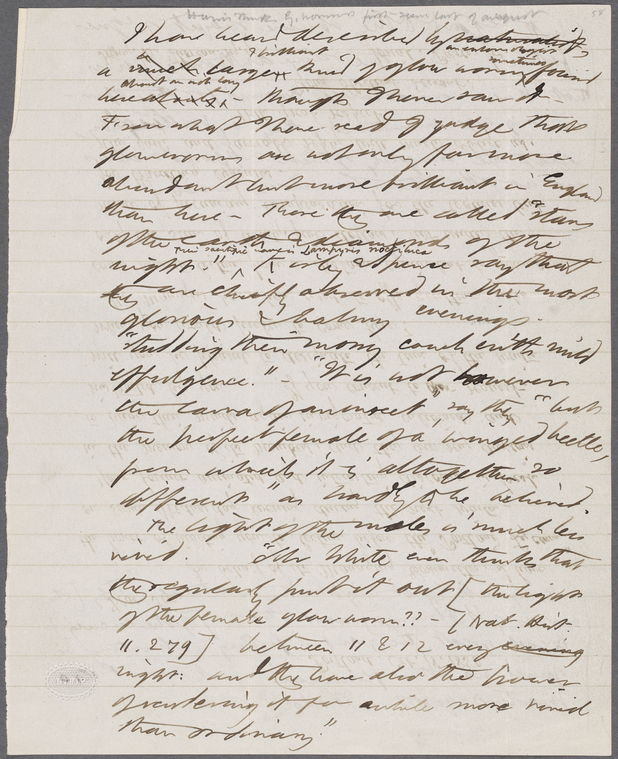 I have heard described by naturalists
an entomologist
a much larger kind of glow worm found
a & brilliant sometimes
hereabouts, - though I never saw it -
about an inch long
From what I have read I judge that
glowworms are not only far more
abundant but more brilliant in England
than here - There they are called "stars
of the earth & diamonds of the
night." It is they say that
their scientific name is Lampyris noctiluca
they are chiefly observed in the most
glorious & balmy evenings.
"studding their mossy couch with mild
effulgence." - "It is not however
the larva of an insect," say they "but
the perfect female of a winged beetle,
from which it is altogether so
different" as hardly to be believed
The light of the males is much less
vivid. "Mr White even thinks that
they regularly put it out [the light
of the female glow worm?? - (Nat. Hist.
11. 279] between 11 & 12 every evening
night: and they have also the power
of rendering it for a while more vivid
than ordinary."